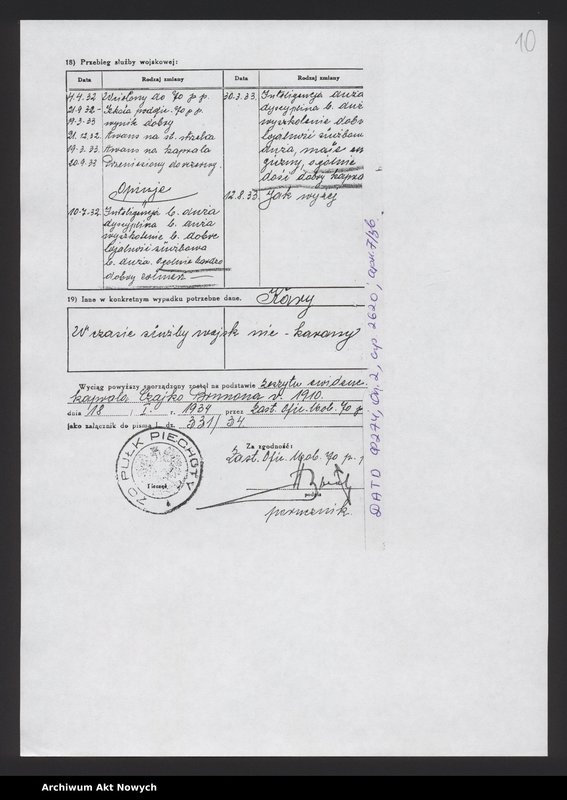 10
18) Przebieg służby wojskowej:
Data Rodzaj zmiany Data Rodzaj zmiany
4.4.32 Wcielony do 70 p.p.
21.9.32 - Szkoła podofic. 70 p.p.
19.3.33 wynik dobry
21.12.32. Awans na st. strzelca
19.3.33. Awans na kaprala
20.9.33 Przeniesiony do rezerwy.
Opinje
10.7.32. Inteligencja b. duża
dyscyplina b. duża
wyszkolenie b. dobre
lojalność służbowa
b. duża. Ogólnie bardzo
dobry żołnierz
30.3.33. Inteligencja duża
dyscyplina b. duż
wyszkolenie dobr
lojalność służbow
duża,
ogólnie
dość dobry kapra
12.8.33. Jak wyżej
19) Inne w konkretnym wypadku potrzebne dane. Kary
W czasie służby wojsk nie - karany
Wyciąg powyższy sporządzony został na podstawie zeszytu ewidenc.
kaprala Czajko Brunona r. 1910.
dnia 18 I. r. 1934 przez Zast. Ofic. Mob. 70 p
jako załącznik do pisma L. dz. 331/34
70 PUŁK PIECHOTY
Pieczęć
Za zgodność:
Zast. Ofic. Mob. 70 p. p
podpis
porucznik.
DATO Ф274, Оп.2, ср 2620; арк. 7/зб.
Archiwum Akt Nowych